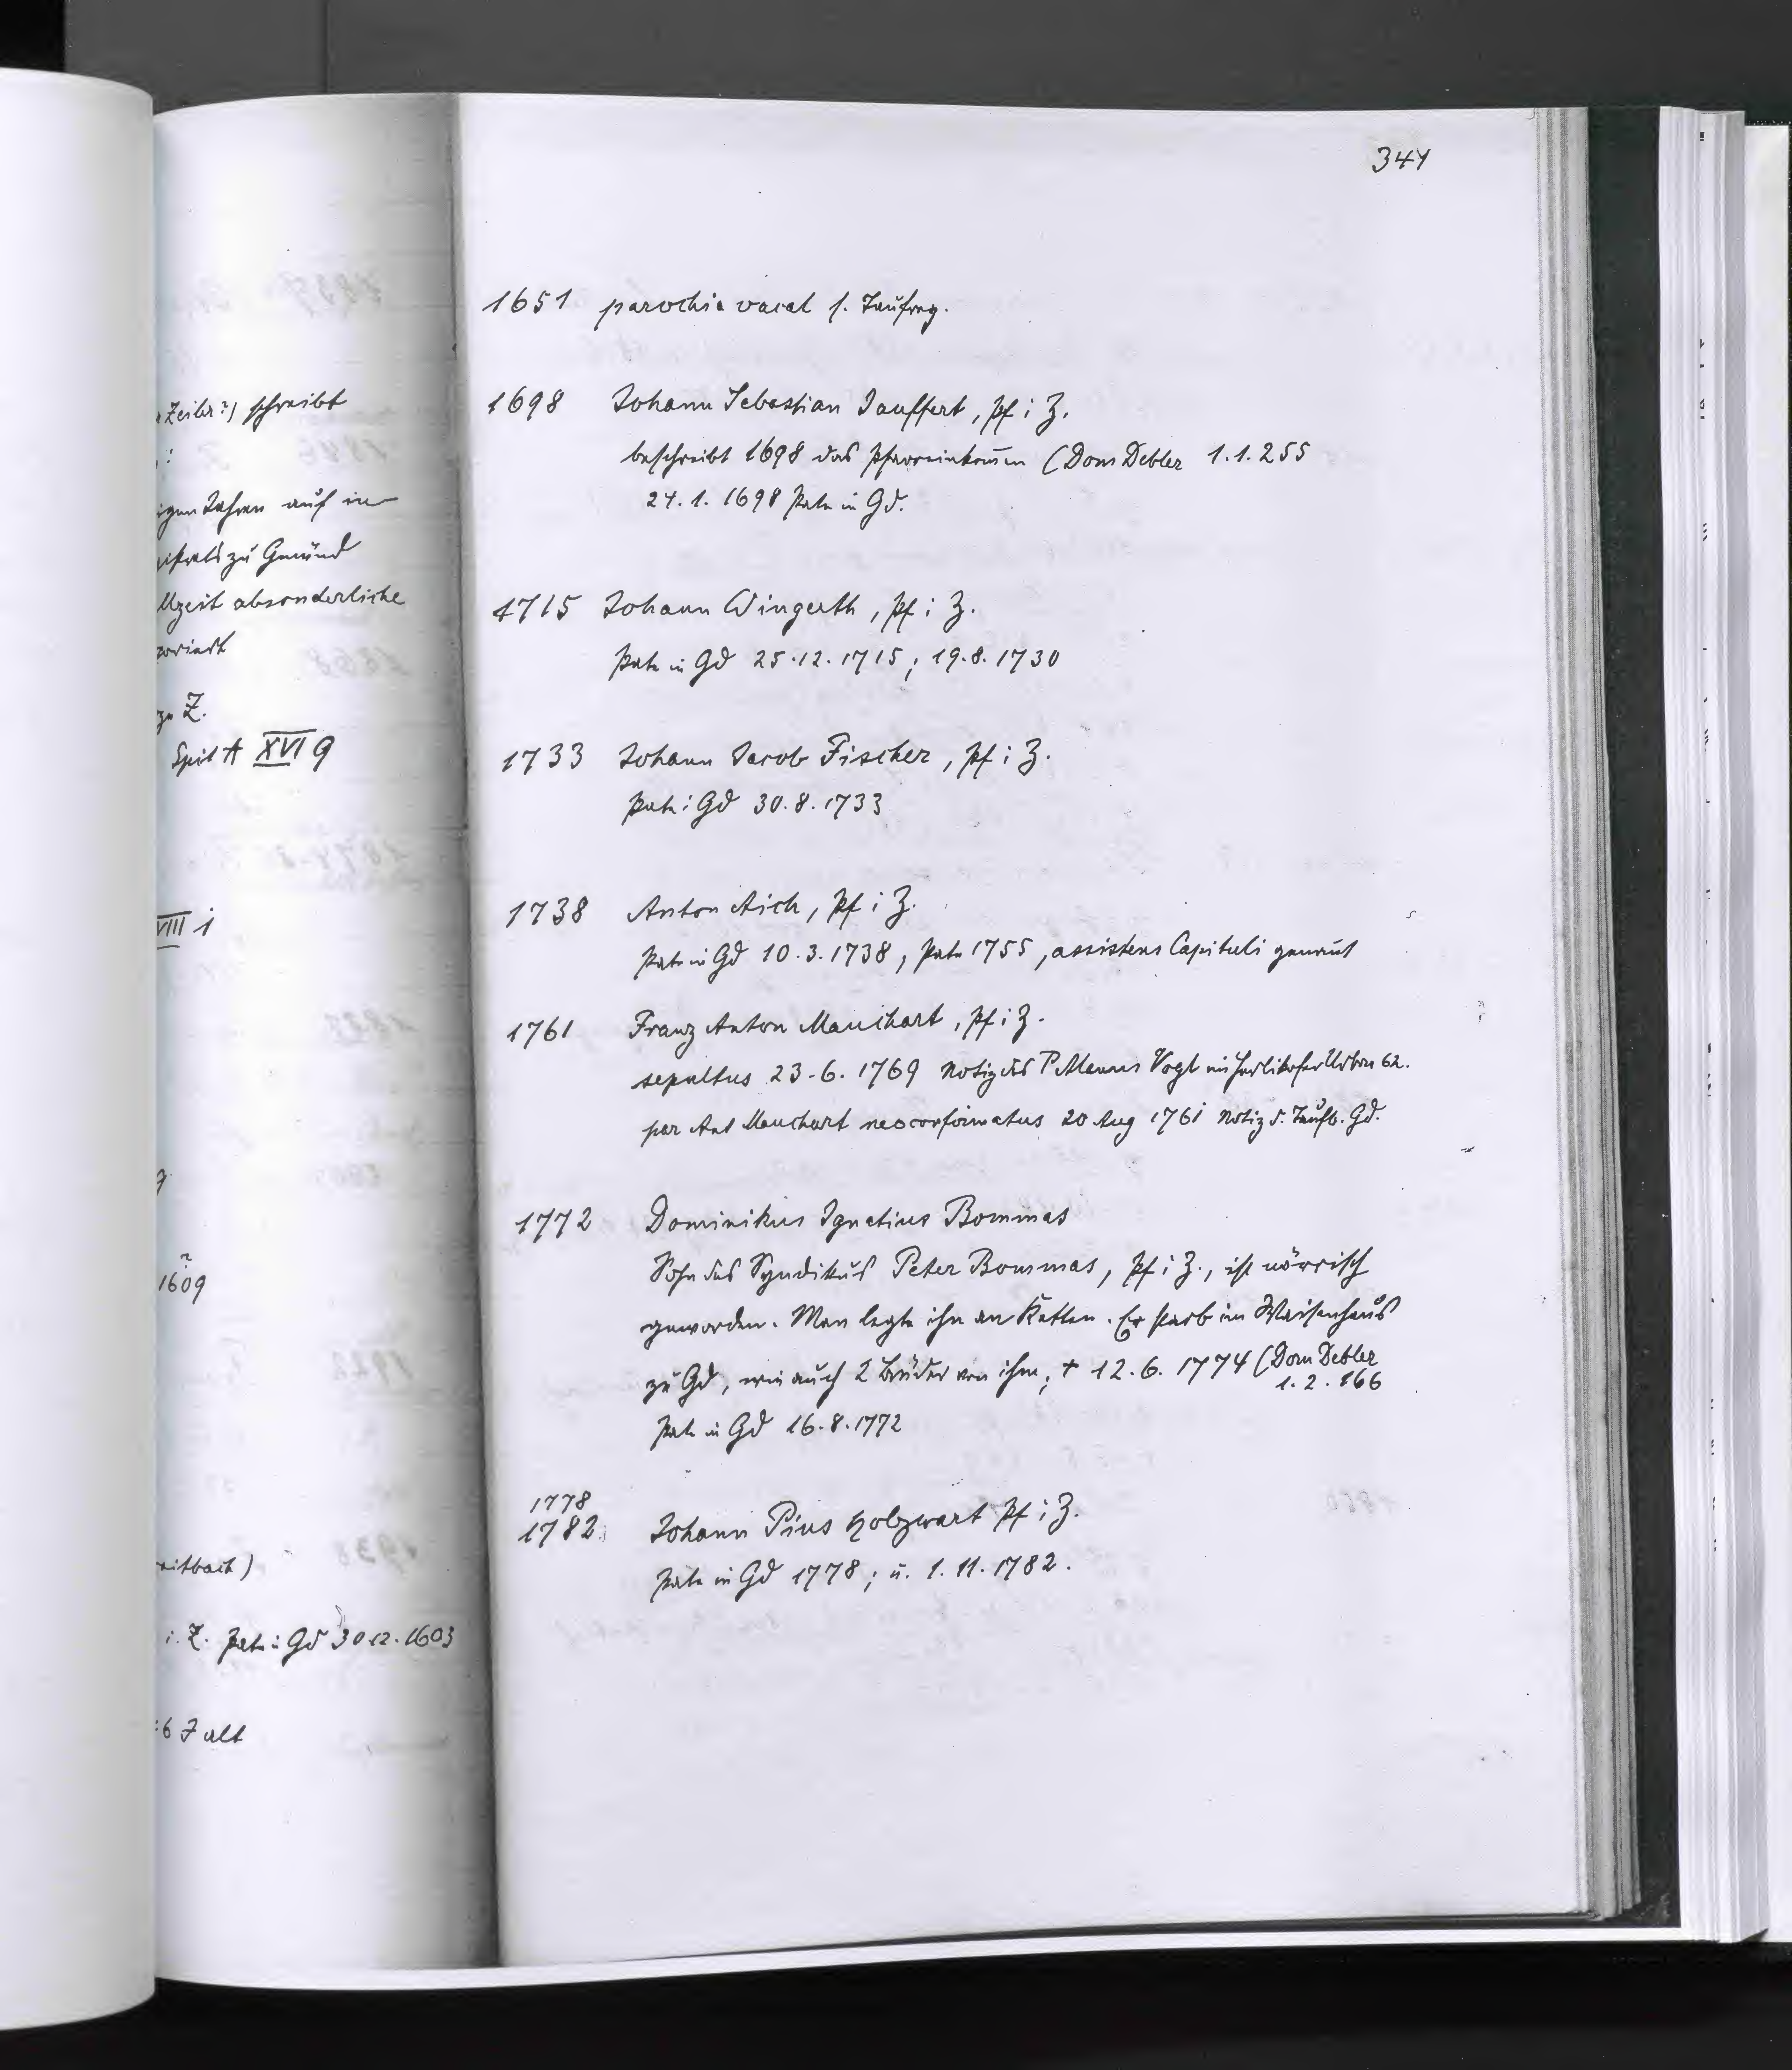 341
1651 parochia vacat s. Taufreg.
1698 Johann Sebastian Jauffert, Pf i Z.
beschreibt 1698 das Pfarreinkomen (Dom Debler 1.1.255
24.1.1698 Pate in Gd.
1715 Johann Wingerth, Pf i Z.
Pate in Gd 25.12.1715; 19.8.1730
1733 Johann Jacob Fischer, Pf i Z.
Pate i Gd 30.8.1733
1738 Anton Aich, Pf i Z.
Pate in Gd 10.3.1738, Pate 1755, assistens Capituli genannt
1761 Franz Anton Mauchart, Pf i Z.
sepultus 23.6.1769 Notiz des P Vogt im Urbar 62.
par Ant Mauchart 20 Aug 1761 Notiz d. Taufb. Gd.
1772 Dominikus Ignatius Bommas
Sohn des Syndikus Peter Bommas, Pf i Z., ist närrisch
geworden. Man legte ihn an Ketten. Er starb im Waisenhaus
zu Gd, wie auch 2 Brüder von ihm; + 12.6.1774 (Dom Debler
1.2.166
Pate in Gd 16.8.1772
1778
1782 Johann Pius Holzwart Pf i Z.
Pate in Gd 1778; u. 1.11.1782.
schreibt
Jahren auf in
zu Gmünd
absonderliche
zu Z.
Spit A XVI 9
VIII i
1609
i. Z. Pate i Gd 30 12.1603
6 J alt